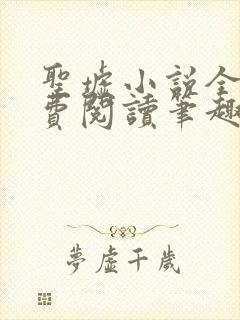 聖墟小說全
費閱讀筆趣
夢虛千歲